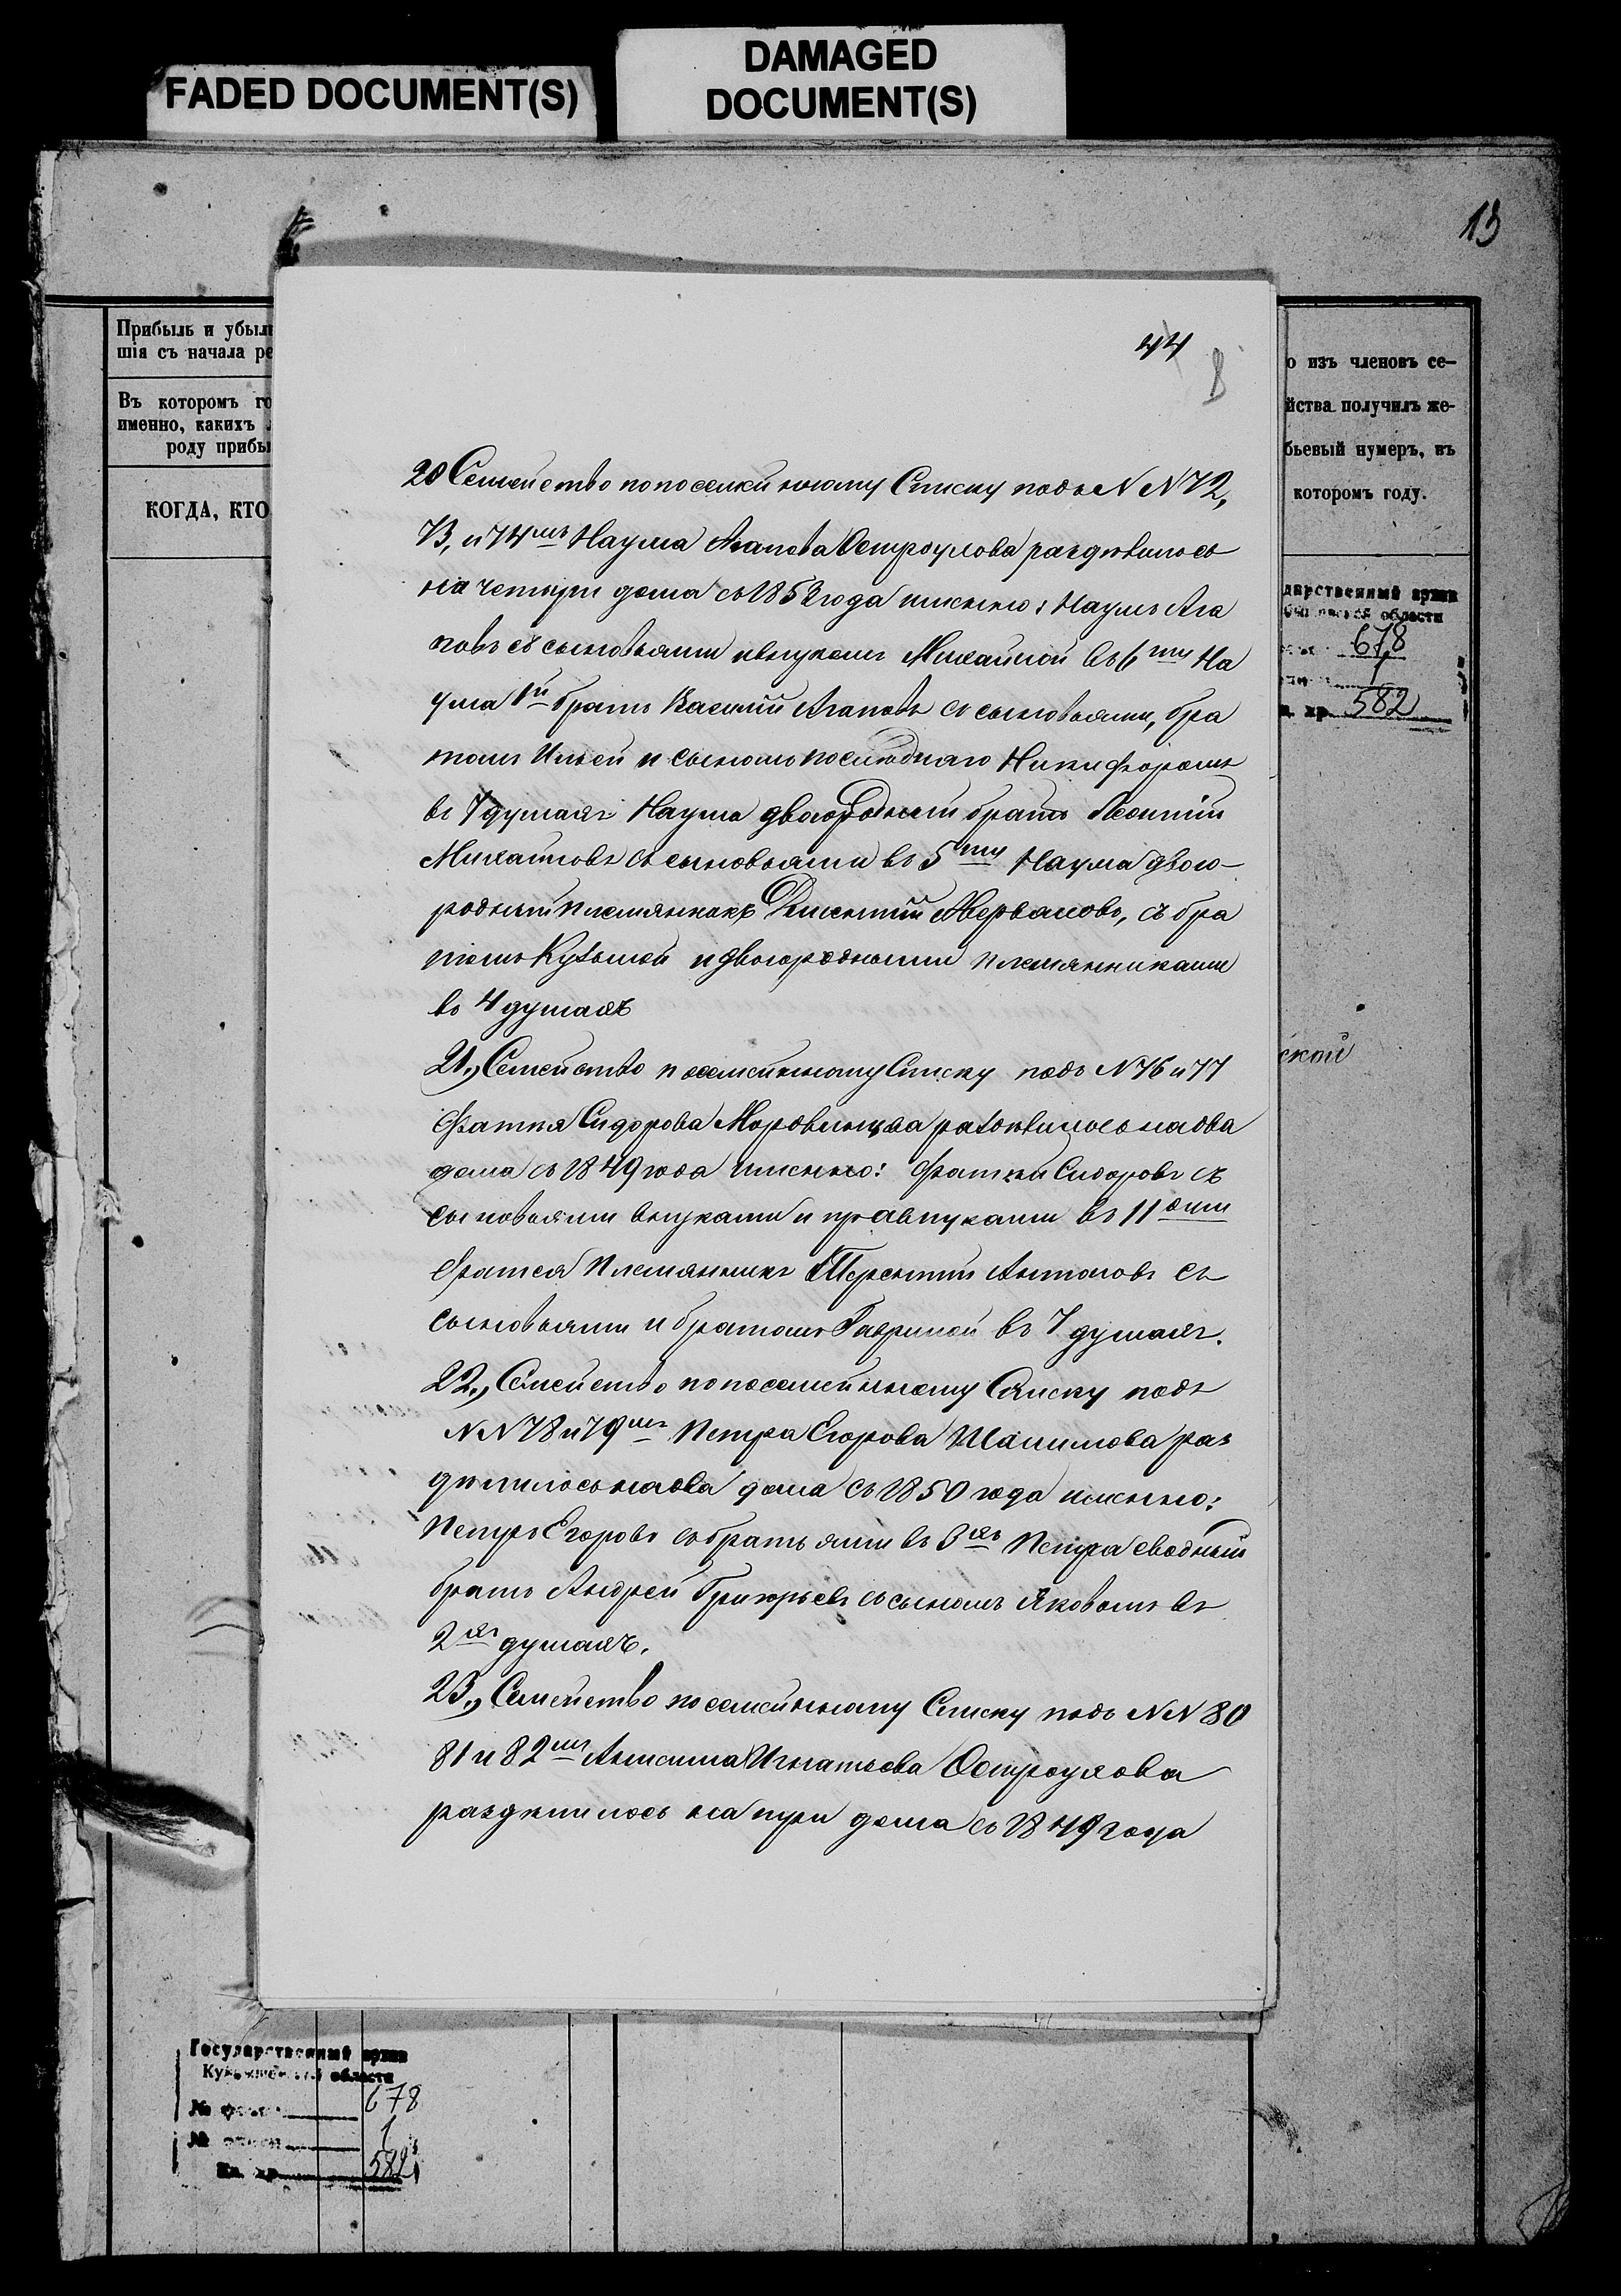 FADED DOCUMENT(S)
DAMAGED
DOCUMENT(S)
13
Прибыль и убыл
шія съ начала ре
Въ которомъ го
именно, какихъ
роду прибы
КОГДА, КТО
о изъ членовъ се-
йства получилъ же-
бьевый нумеръ, въ
которомъ году.
дарственный архив
области
678
1
хр. 582
ской
44
8
20 Семейство по посемейному Списку подъ N N 72,
73, и 74мъ Наума Агапова Остроухова раздѣлилось
на четыри дома съ 1853 года именно: Наумъ Ага
повъ съ сыновьями и внукомъ Михайлой въ 6ти На
ума 1й братъ Василій Агаповъ съ сыновьями, бра
томъ Ильей и сыномъ послѣдняго Никифоромъ
въ 7 душахъ Наума двоюродный братъ Леонтій
Михайловъ съ сыновьями въ 5ти Наума двою-
родный племянникъ Дементій Аверьяновъ, съ бра
томъ Кузьмой и двоюродными племянниками
въ 4 душахъ
21., Семейство посемейному Списку подъ N 76 и 77
Фатея Сидорова Мордвинцева раздѣлилось на два
дома съ 1849 года именно: Фатей Сидоровъ съ
сыновьями внуками и правнуками въ 11 
Фатея Племянникъ Терентій Антоновъ съ
сыновьями и братомъ Гаврилой въ 7 душахъ.
22., Семейство по посемейному Списку подъ
N N 78 и 79мъ Петра Егорова Шалимова раз
дѣлилось на два дома съ 1850 года именно:
Петръ Егоровъ съ братьями въ 3хъ Петра сводный
братъ Андрей Григорьевъ съ сыномъ Яковомъ въ
2хъ душахъ.
23., Семейство посемейному Списку подъ N N 80
81 и 82мъ Анисима Игнатьева Остроухова
раздѣлилось на три дома съ 1849 года
Государственный архив
Куйбышевской области
№ фонда 678
№ описи 1
Ед. хр. 582